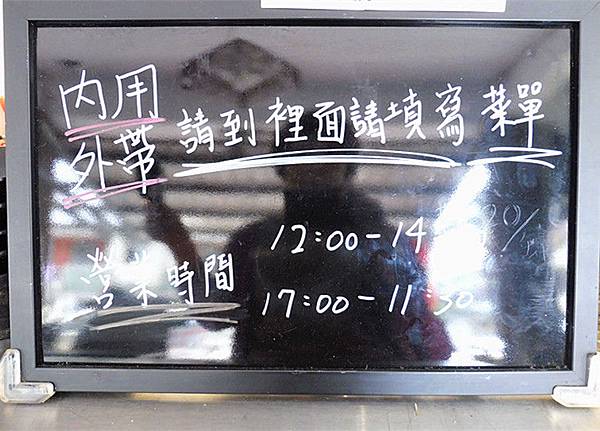 內用
外帶 請到裡面請填寫菜單
營業時間
12:00-14
17:00-11:30